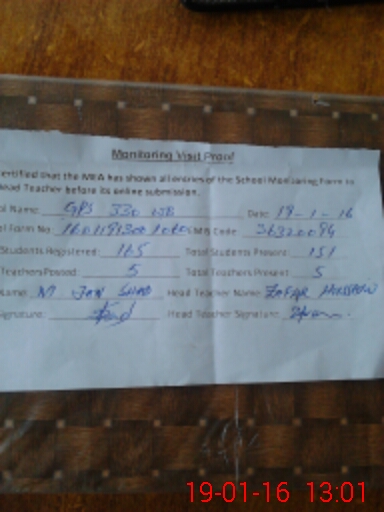 Monitoring Visit Proof
ertified that the MEA has shown all entries of the School Monitoring Form to
Head Teacher before its online submission.
ol Name: GPS 330 WB Date: 19-1-16
ol Form No. EMIS Code: 36320094
Students Registered: 165 Total Students Present: 151
Teachers Posted: 5 Total Teachers Present: 5
Name: M Jan Head Teacher Name: Zafar Hussain
Signature: Head Teacher Signature:
19-01-16 13:01